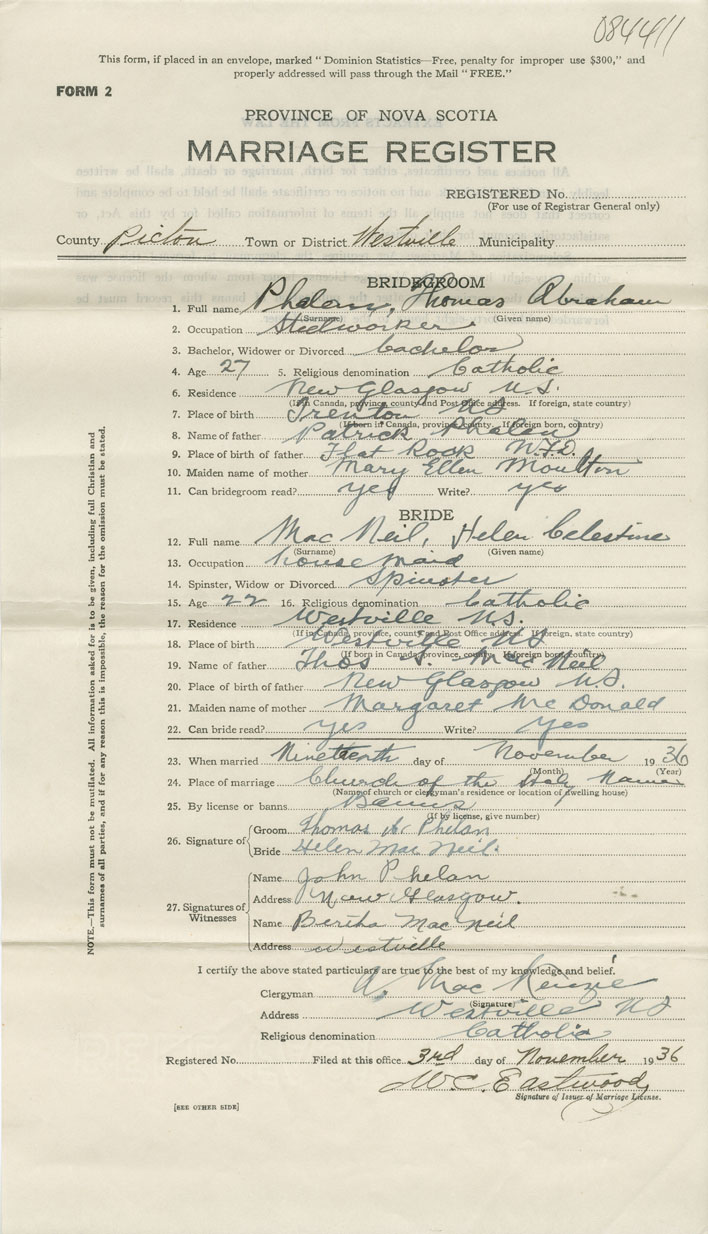 084411
This form, if placed in an envelope, marked "Dominion Statistics—Free, penalty for improper use $300," and
properly addressed will pass through the Mail "FREE."
FORM 2
PROVINCE OF NOVA SCOTIA
MARRIAGE REGISTER
REGISTERED No.
(For use of Registrar General only)
County Pictou Town or District Westville Municipality
BRIDEGROOM
1. Full name Phalen, Thomas Abraham
(Surname) (Given name)
2. Occupation Steelworker
3. Bachelor, Widower or Divorced bachelor
4. Age 27 5. Religious denomination Catholic
6. Residence New Glasgow N.S.
(If in Canada, province, county and Post Office address. If foreign, state country)
7. Place of birth Trenton NS
(If born in Canada, province, county. If foreign born, country)
8. Name of father Patrick Phalen
9. Place of birth of father Flat Rock NFD.
10. Maiden name of mother Mary Ellen Moulton
11. Can bridegroom read? yes Write? yes
BRIDE
12. Full name Mac Neil, Helen Celestine
(Surname) (Given name)
13. Occupation house maid
14. Spinster, Widow or Divorced Spinster
15. Age 22 16. Religious denomination Catholic
17. Residence Westville N.S.
(If in Canada, province, county and Post Office address. If foreign, state country)
18. Place of birth Westville NS
(If born in Canada, province, county. If foreign born, country)
19. Name of father Thos Mac Neil
20. Place of birth of father New Glasgow N.S.
21. Maiden name of mother Margaret Mc Donald
22. Can bride read? yes Write? Yes
23. When married Nineteenth day of November 1936
(Month) (Year)
24. Place of marriage Church of the Holy Name
(Name of church or clergyman's residence or location of dwelling house)
25. By license or banns Banns
(If by license, give number)
26. Signature of Groom Thomas A. Phelan
Bride Helen Mac Neil.
27. Signatures of Witnesses Name John Phelan
Address New Glasgow.
Name Bertha Mac Neil
Address Westville
I certify the above stated particulars are true to the best of my knowledge and belief.
Clergyman A. Mac Kenzie
(Signature)
Address Westville NS
Religious denomination Catholic
Registered No. Filed at this office 3rd day of November 1936
W.C. Eastwood
Signature of Issuer of Marriage License.
[SEE OTHER SIDE]
NOTE.—This form must not be mutilated. All information asked for is to be given, including full Christian and
surnames of all parties, and if for any reason this is impossible, the reason for the omission must be stated.